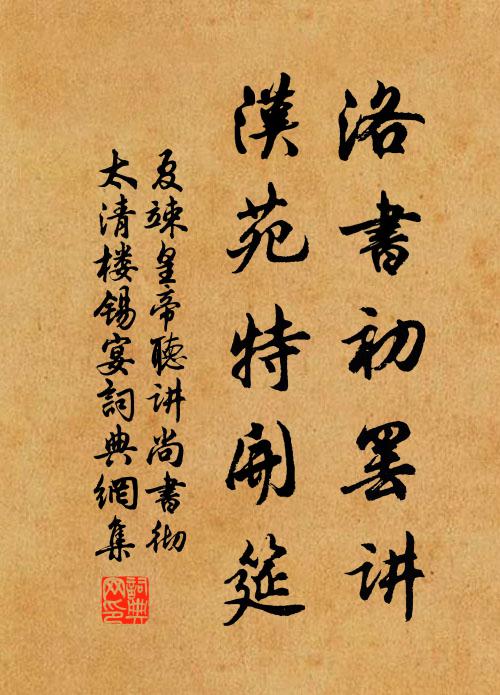 洛書初罢讲
漢苑特開筵
夏竦皇帝聽讲尚書彻
太清楼锡宴詞典網集
詞典網印